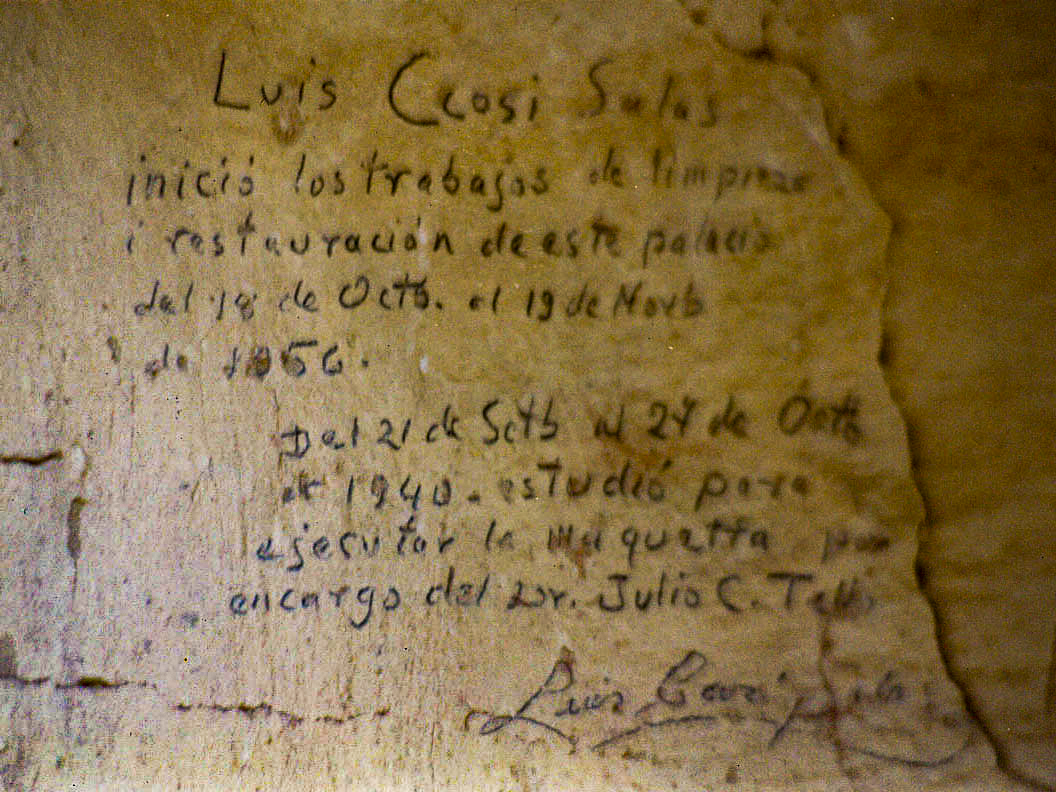 Luis Ccosi Salas
inició los trabajos de limpieza
i restauración de este palacio
del 18 de Octb. al 19 de Novb
de 1956.
Del 21 de Setb al 24 de Octb
de 1940. estudió para
ejecutar la maquetta por
encargo del Dr. Julio C. Tello
Luis Ccosi Salas